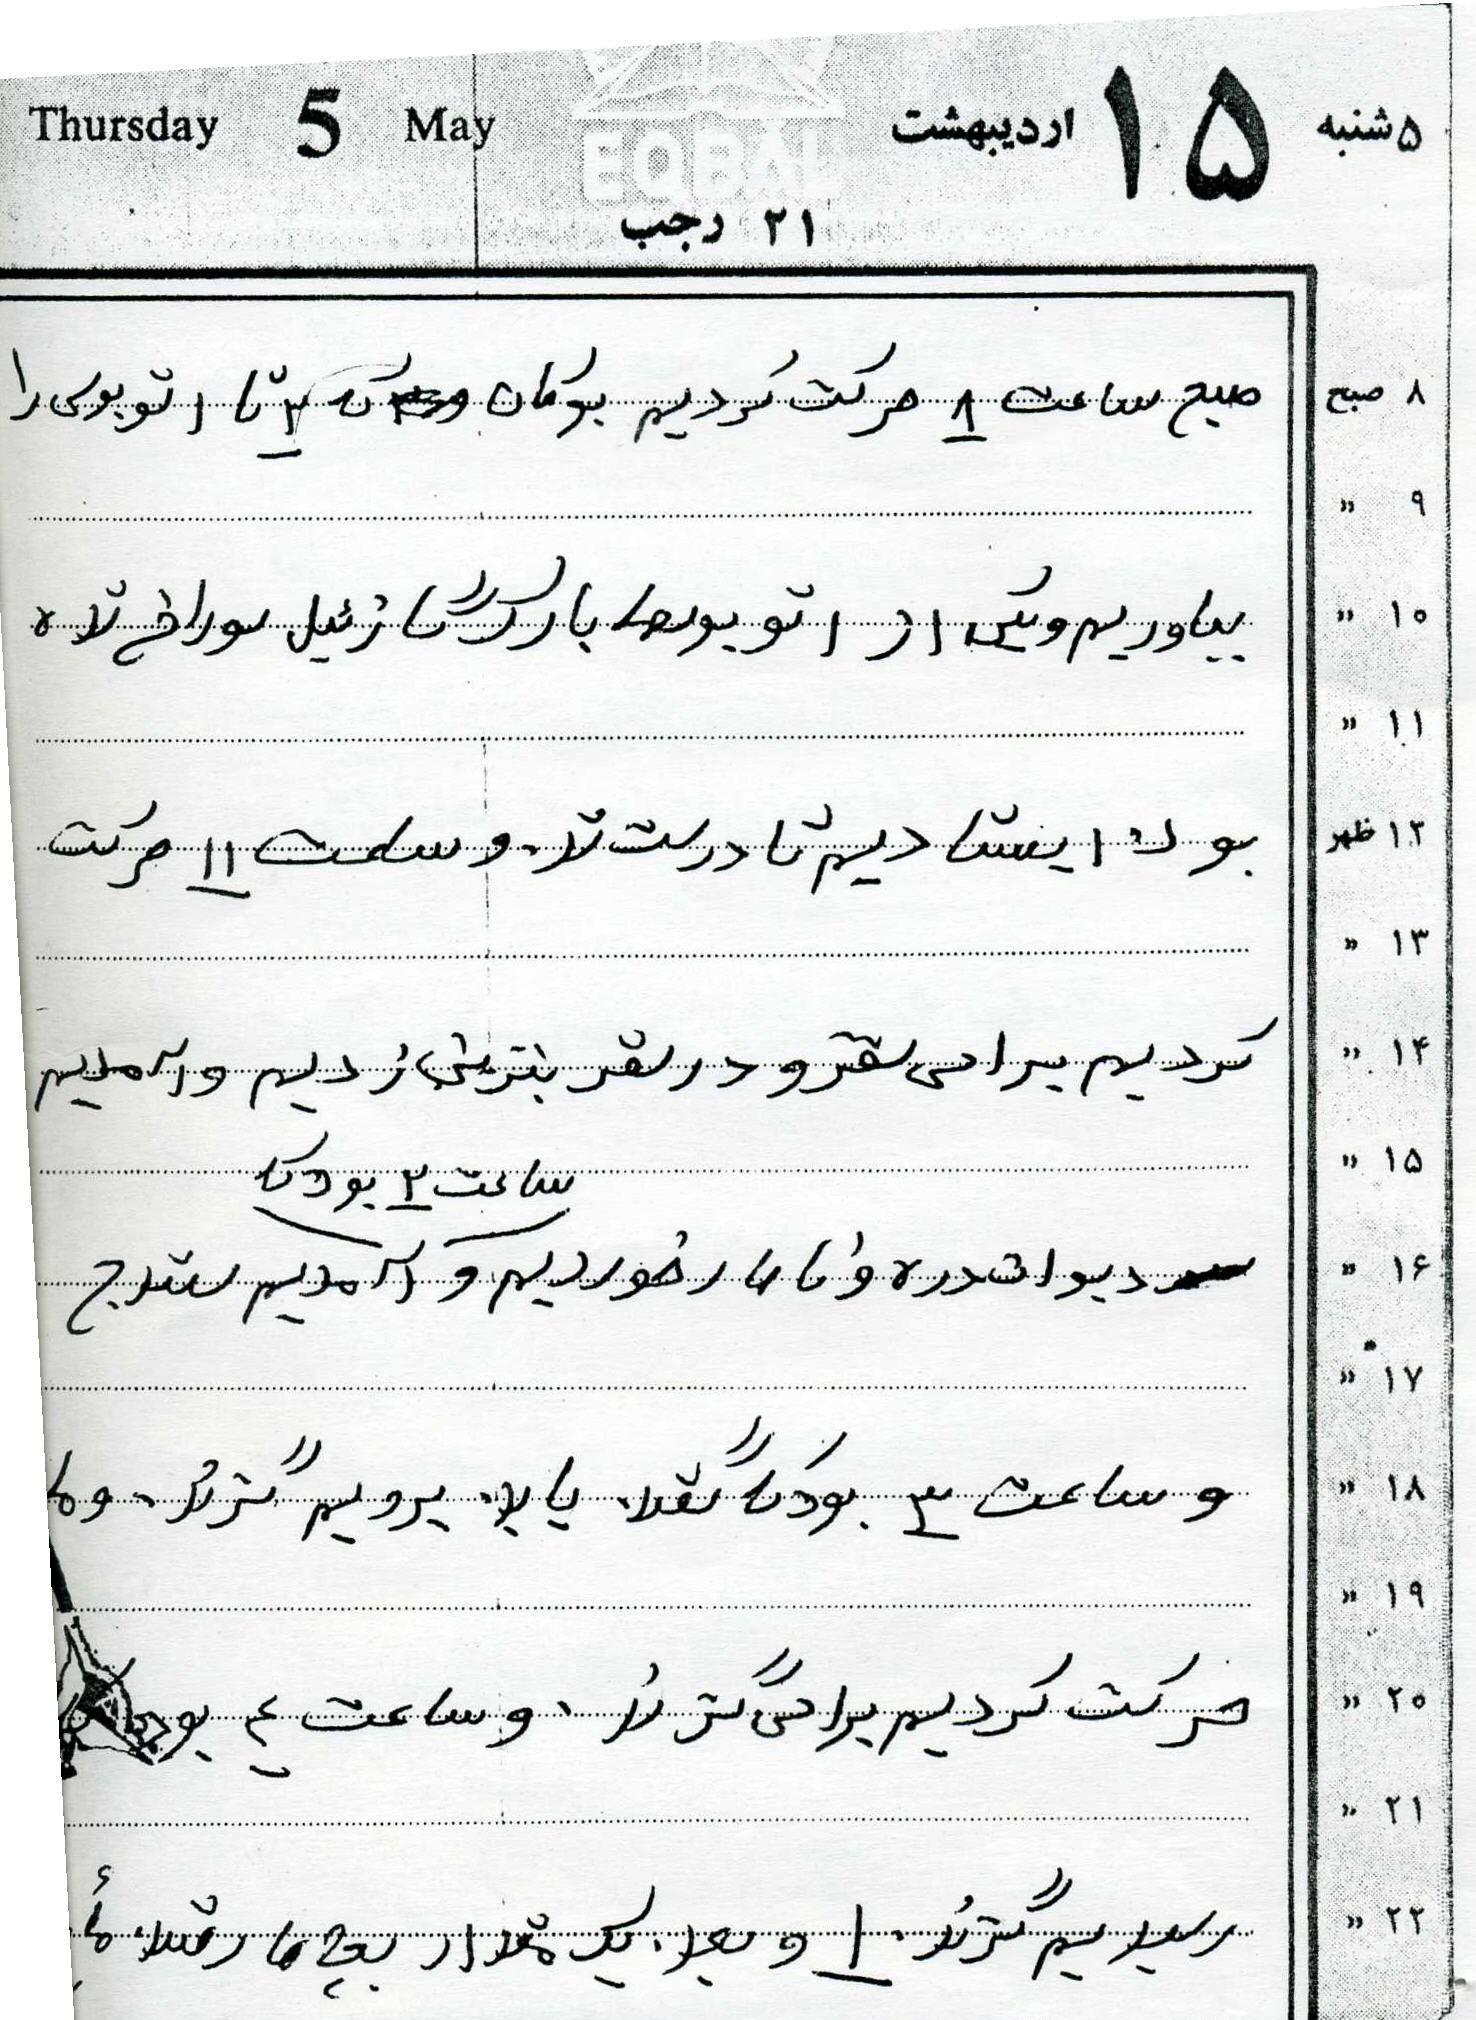 ۵شنبه ۱۵ اردیبهشت May 5 Thursday
EQBAL
۲۱ رجب
۸ صبح صبح ساعت ۸ حرکت کردیم بوکان که ۲ تا اتوبوس را
۹ »
۱۰ » بیاوریم ویکی از اتوبوسها بارگر گازئیل سوراخ شده
۱۱ »
۱۲ ظهر بود ایستادیم تا درست شد و ساعت ۱۱ حرکت
۱۳ »
۱۴ » کردیم برای سقز و در سقز بنزین زدیم و آمدیم
۱۵ » ساعت ۲ بود که
۱۶ » دیواندره و ناهار خوردیم و آمدیم سنندج
۱۷ »
۱۸ » و ساعت ۳ بود که گفتند باید برویم گتزند و ما
۱۹ »
۲۰ » حرکت کردیم برای گتزند و ساعت ۴ بود
۲۱ »
۲۲ » رسیدیم گتزند ۱ و بعد یک مقدار بچه ها رفتند